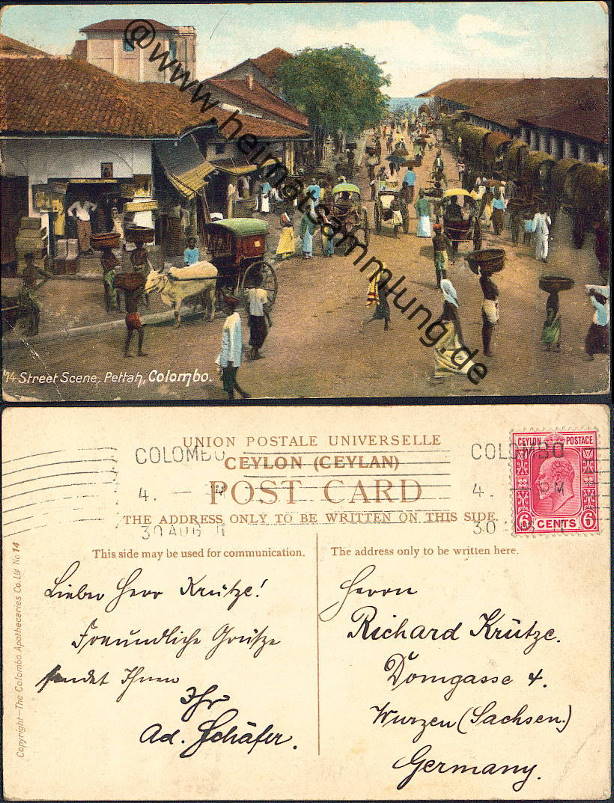 @www.heimatsammlung.de
14 Street Scene, Pettah, Colombo.
UNION POSTALE UNIVERSELLE
CEYLON (CEYLAN)
POST CARD
THE ADDRESS ONLY TO BE WRITTEN ON THIS SIDE.
COLOMBO
4.
30 AUG 11
COLOMBO
4.
M
30
CEYLON POSTAGE
6 CENTS 6
This side may be used for communication.
The address only to be written here.
Lieber Herr Krütze!
Freundliche Grütze
sendet Ihnen
Ihr
Ad. Schäfer.
Herrn
Richard Krütze.
Domgasse 4.
Wurzen (Sachsen.)
Germany.
Copyright—The Colombo Apothecaries Co. Ld No 14